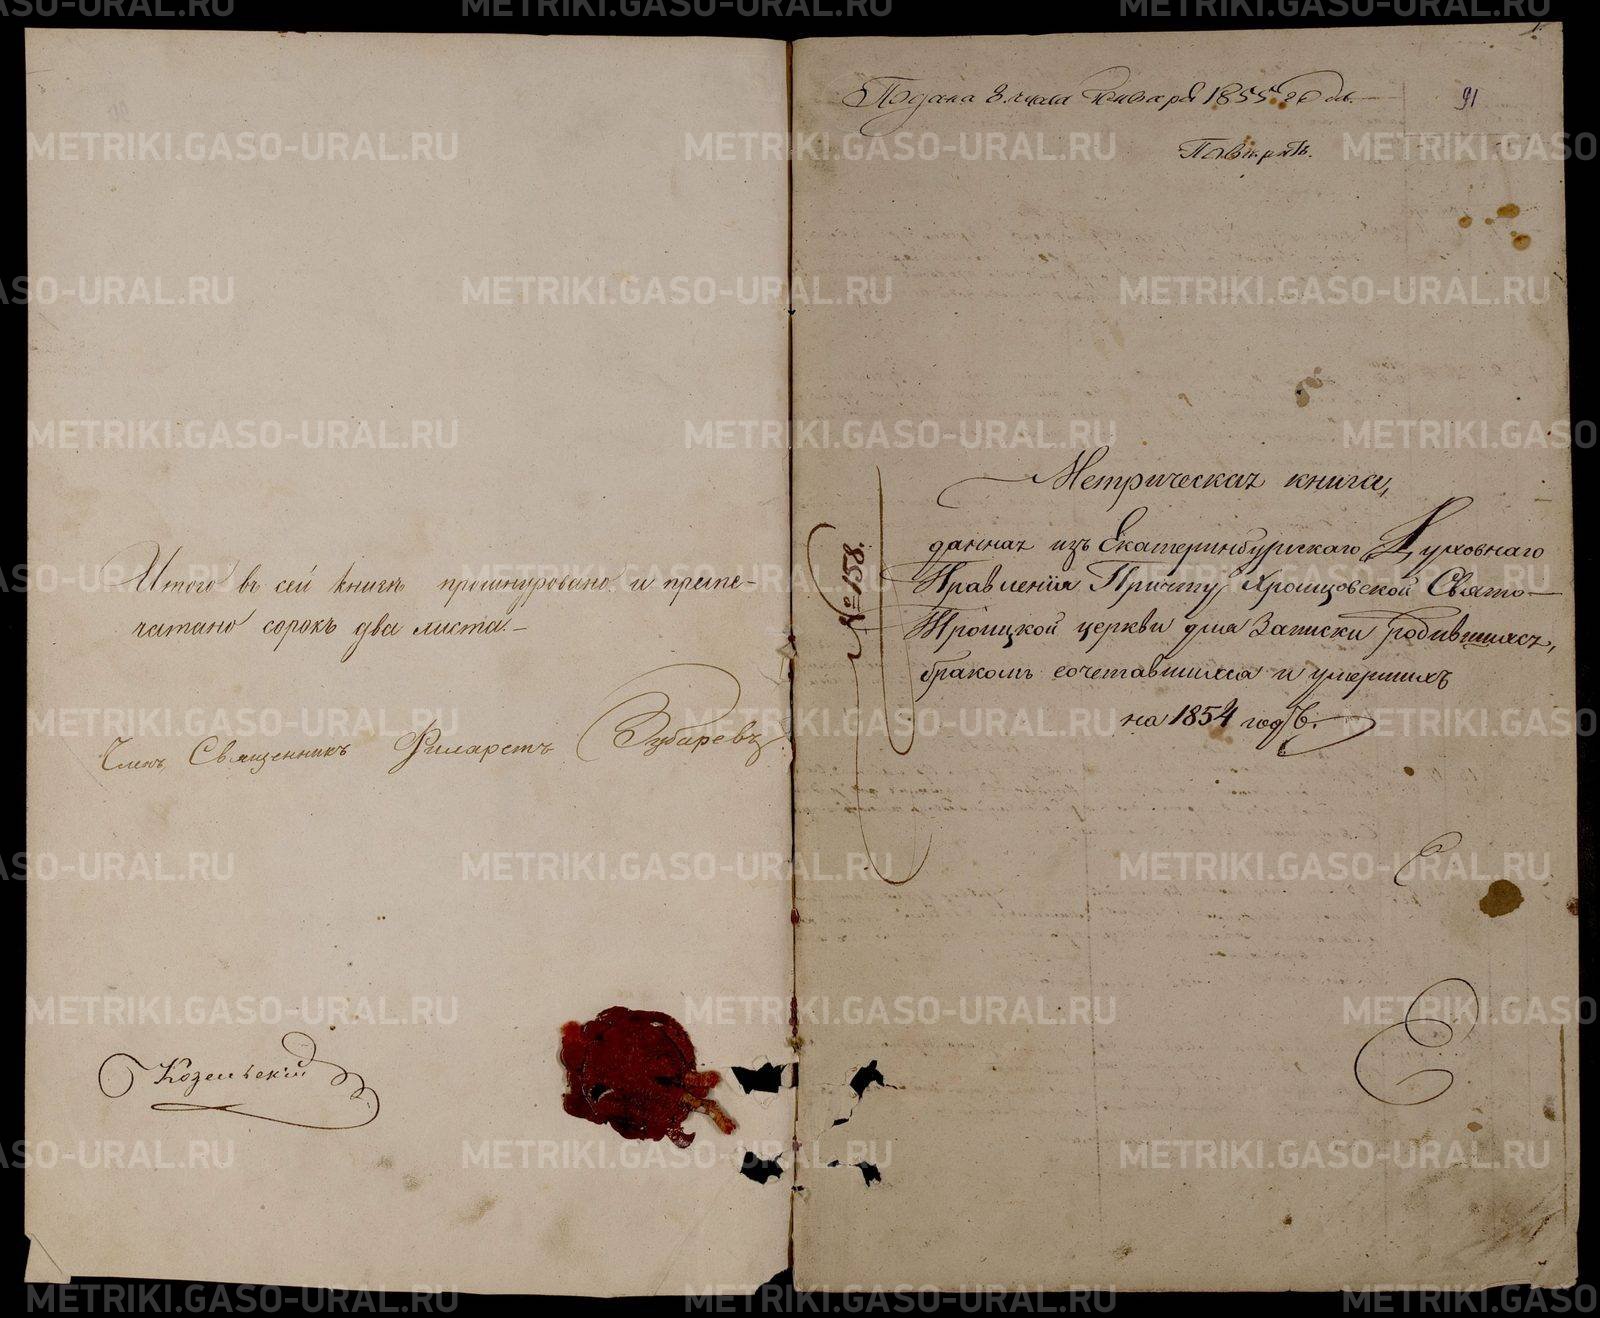 Итого въ сей книгѣ прошнуровано и препе-
чатано сорокъ два листа.
Членъ Священникъ Филаретъ Зубаревъ
Козельскій
Подана 8. числа Января 1855 года.
91
Метрическая книга,
данная изъ Екатеринбургскаго Духовнаго
Правленія Причту Хромцовской Свято-
Троицкой церкви для Записки родившихся,
бракомъ сочетавшихся и умершихъ
на 1854 годъ.
№ 1358.
METRIKI.GASO-URAL.RU